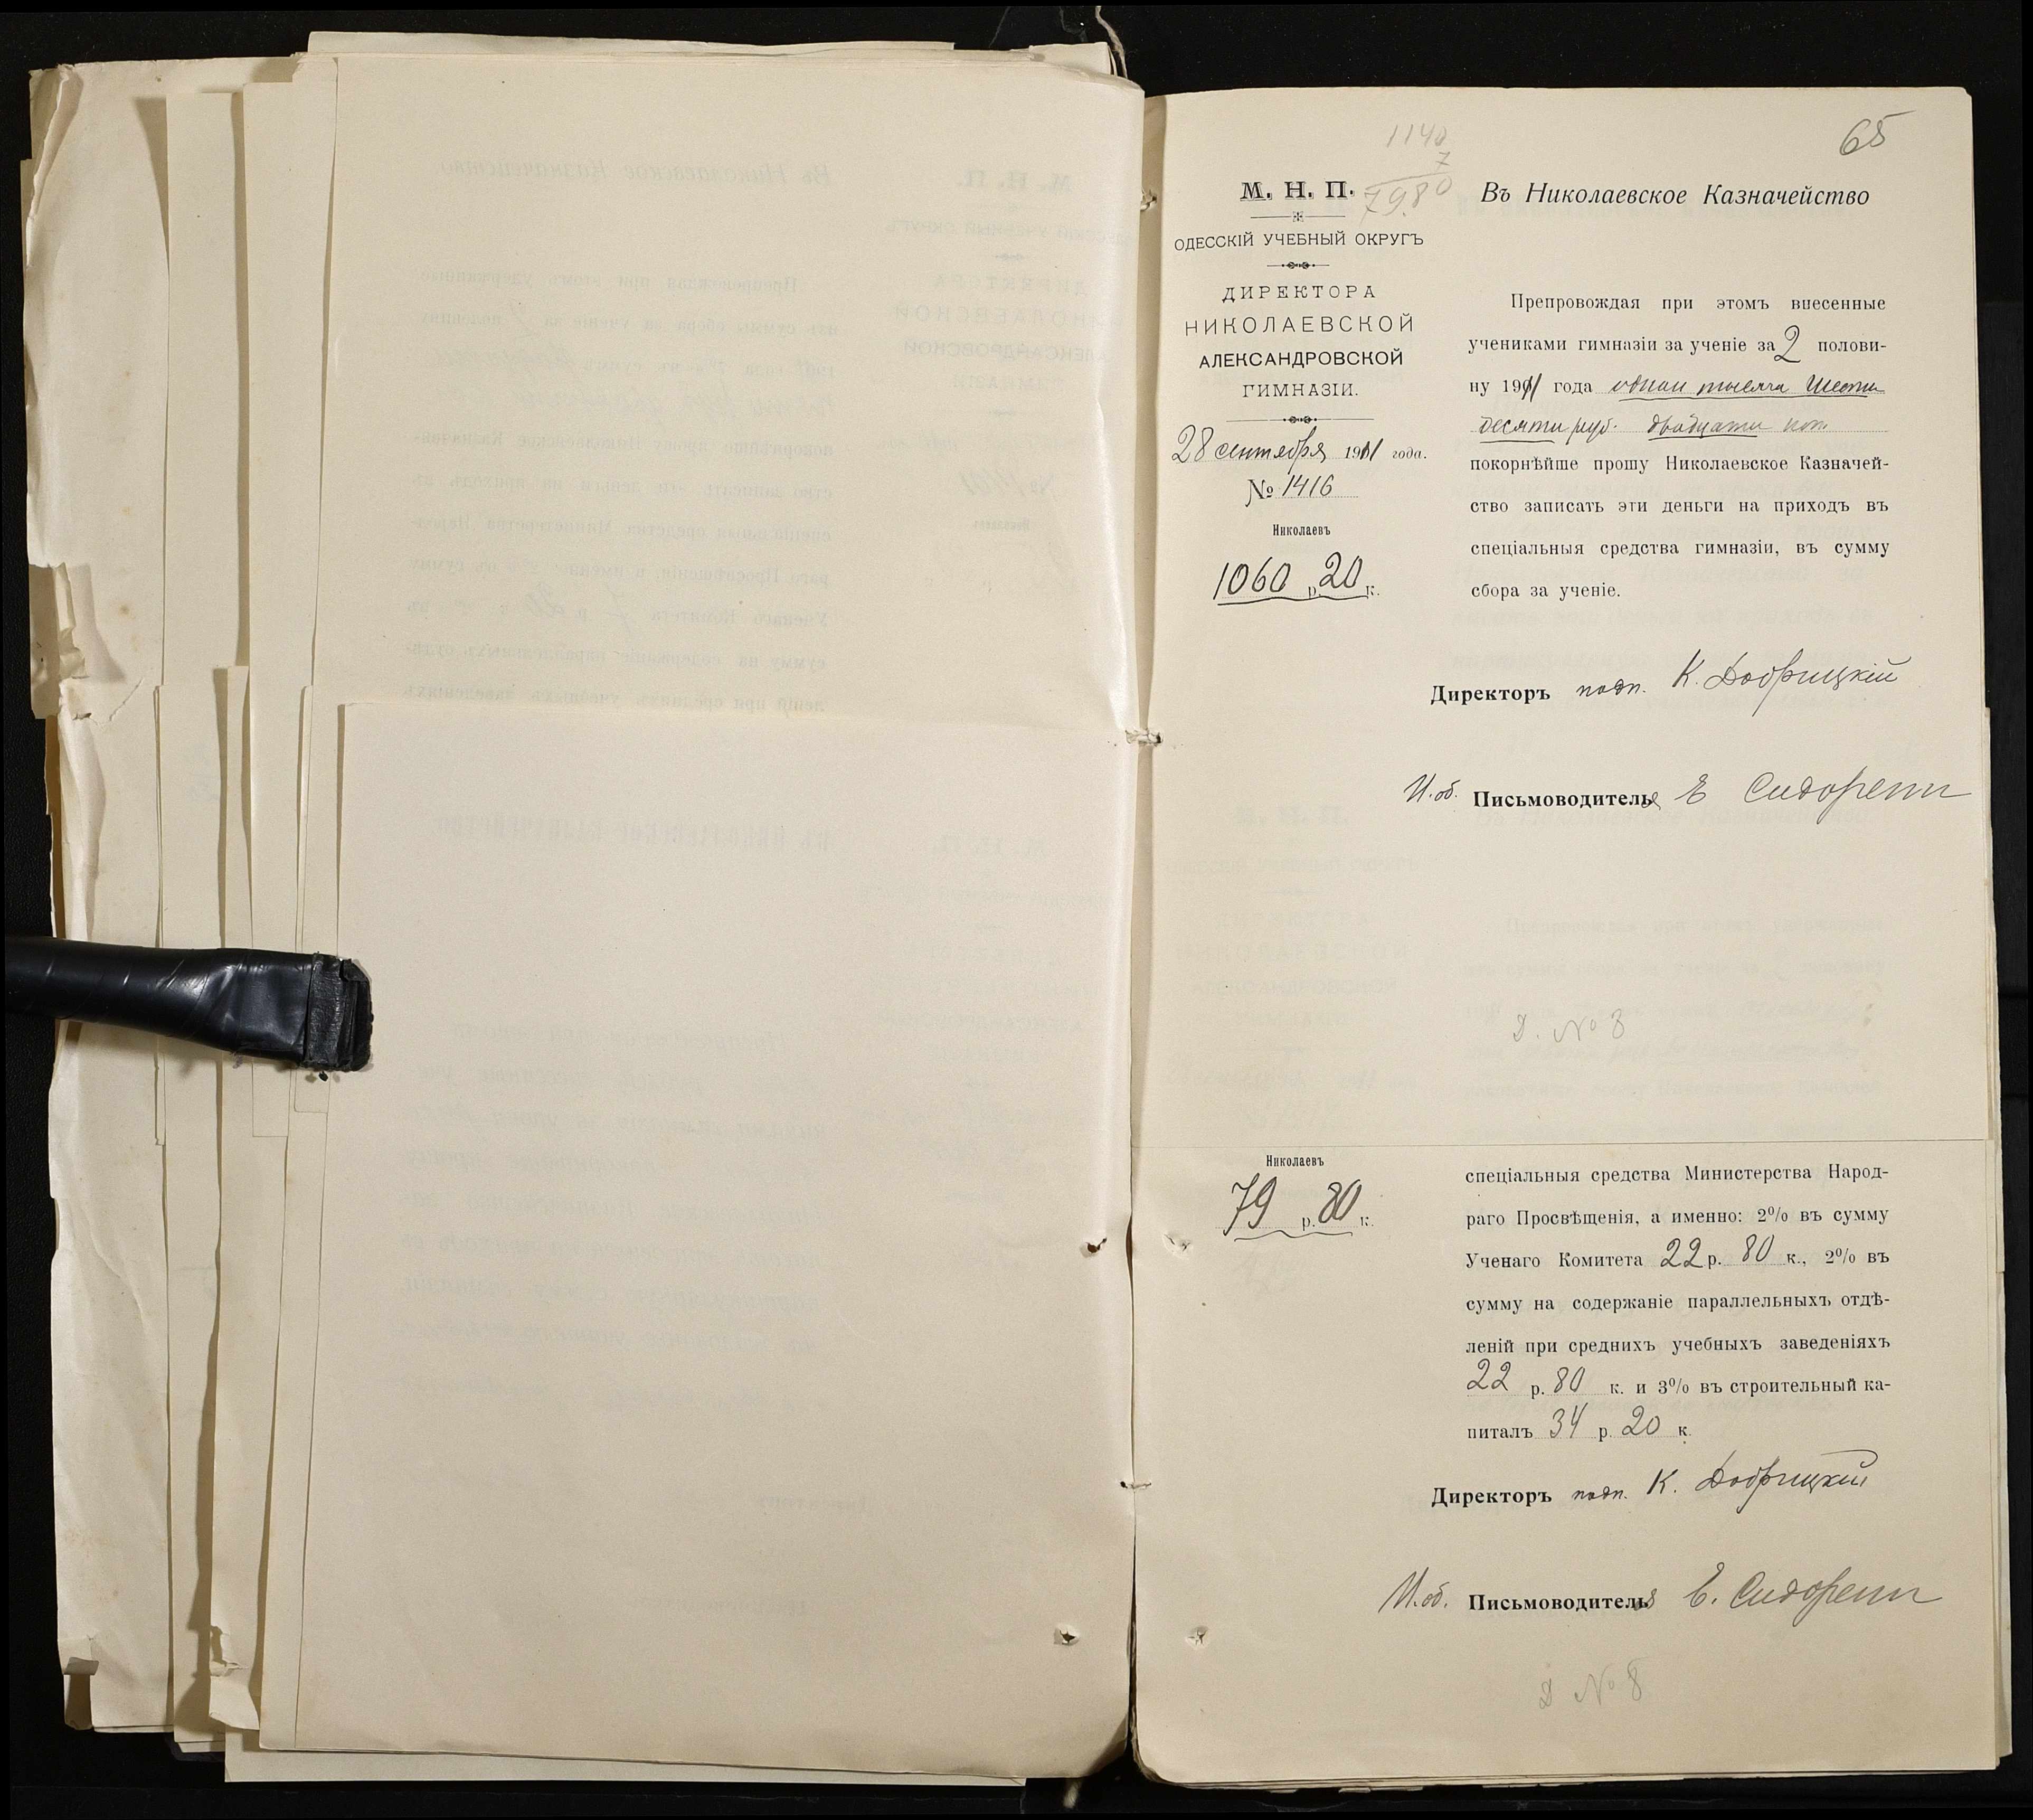 65
1140
7
79.80
М. Н. П.
ОДЕССКІЙ УЧЕБНЫЙ ОКРУГЪ
ДИРЕКТОРА
НИКОЛАЕВСКОЙ
АЛЕКСАНДРОВСКОЙ
ГИМНАЗІИ.
28 сентября 1911 года.
№ 1416
Николаевъ
1060 р. 20 к.
Въ Николаевское Казначейство
Препровождая при этомъ внесенные
учениками гимназіи за ученіе за 2 полови-
ну 1911 года одна тысяча шесть
десять руб. двадцать коп.
покорнѣйше прошу Николаевское Казначей-
ство записать эти деньги на приходъ въ
спеціальныя средства гимназіи, въ сумму
сбора за ученіе.
Директоръ подп. К. Добрицкій
И. об. Письмоводителя Е Сидоренко
Д. № 8
Николаевъ
79 р. 80 к.
спеціальныя средства Министерства Народ-
раго Просвѣщенія, а именно: 2% въ сумму
Ученаго Комитета 22 р. 80 к., 2% въ
сумму на содержаніе параллельныхъ отдѣ-
леній при среднихъ учебныхъ заведеніяхъ
22 р. 80 к. и 3% въ строительный ка-
питалъ 34 р. 20 к.
Директоръ подп. К. Добрицкій
И. об. Письмоводителя Е. Сидоренко
Д № 8